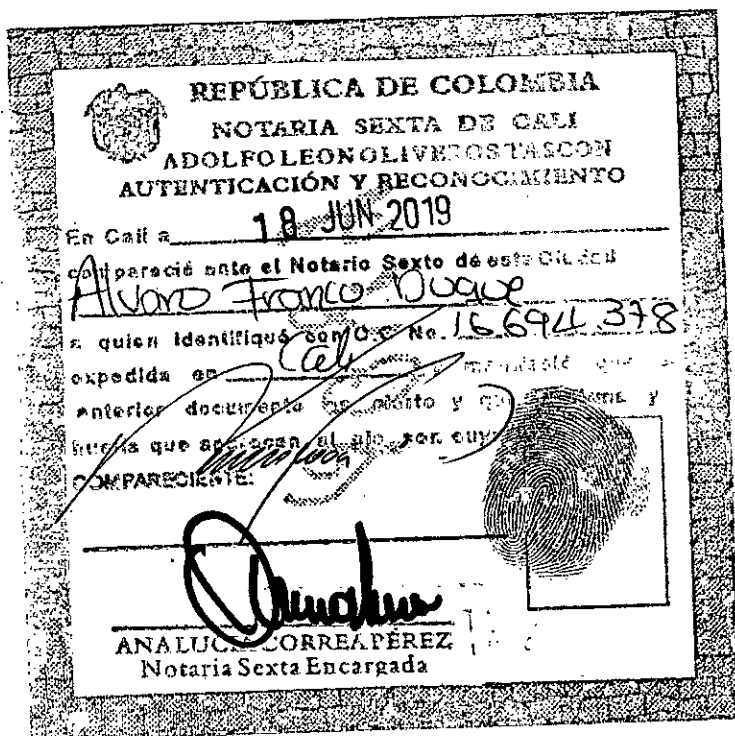 REPÚBLICA DE COLOMBIA
NOTARIA SEXTA DE CALI
ADOLFO LEON OLIVEROS TASCON
AUTENTICACIÓN Y RECONOCIMIENTO
En Cali a 18 JUN 2019
compareció ante el Notario Sexto de este Ciudad
Alvaro Franco Duque
a quien identifiqué con C.C. No. 16694378
expedida en Cali y manifestó que
anterior documento es cierto y que firma y
huella que aparecen al pie son suyas
COMPARECIENTE:
ANA LUCIA CORREA PÉREZ
Notaria Sexta Encargada